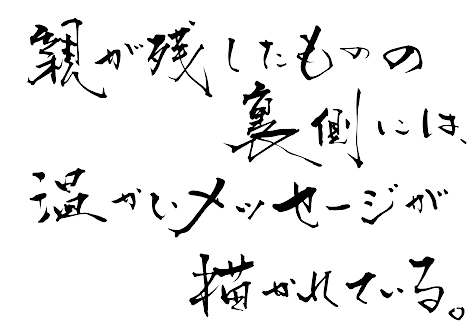 親が残したものの
裏側には、
温かいメッセージが
描かれている。